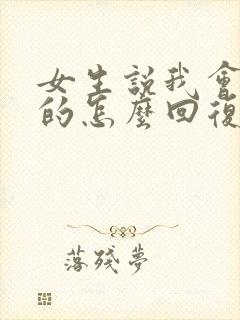 女生說我會
的怎麼回復
落殘夢